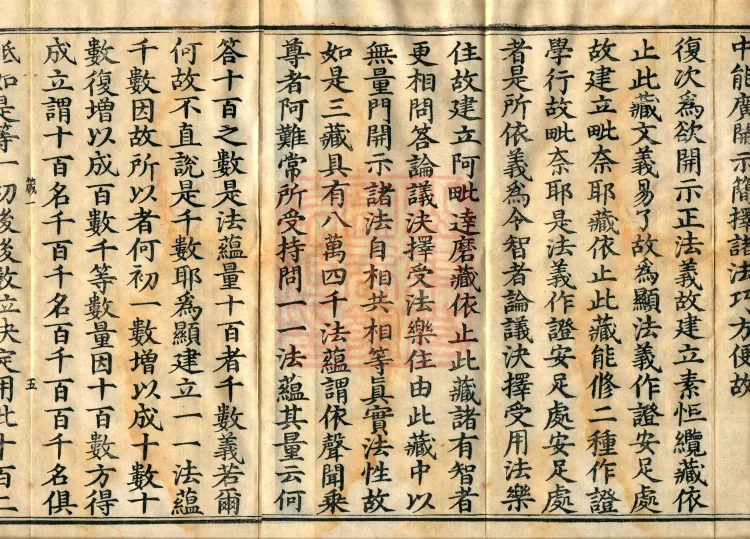 中能廣開示簡擇諸法巧方便故
復次爲欲開示正法義故建立素怛纜藏依
止此藏文義易了故爲顯法義作證安足處
故建立毗奈耶藏依止此藏能修二種作證
學行故毗奈耶是法義作證安足處安足處
者是所依義爲令智者論議決擇受用法樂
住故建立阿毗達磨藏依止此藏諸有智者
更相問答論議決擇受法樂住由此藏中以
無量門開示諸法自相共相等眞實法性故
如是三藏具有八萬四千法蘊謂依聲聞乘
尊者阿難常所受持問一一法蘊其量云何
答十百之數是法蘊量十百者千數義若爾
何故不直說是千數耶爲顯建立一一法蘊
千數因故所以者何初一數增以成十數十
數復增以成百數千等數量因十百數方得
成立謂十百名千百千名百千百百千名俱
一 五
胝如是等一切後後數立決定用此十百二